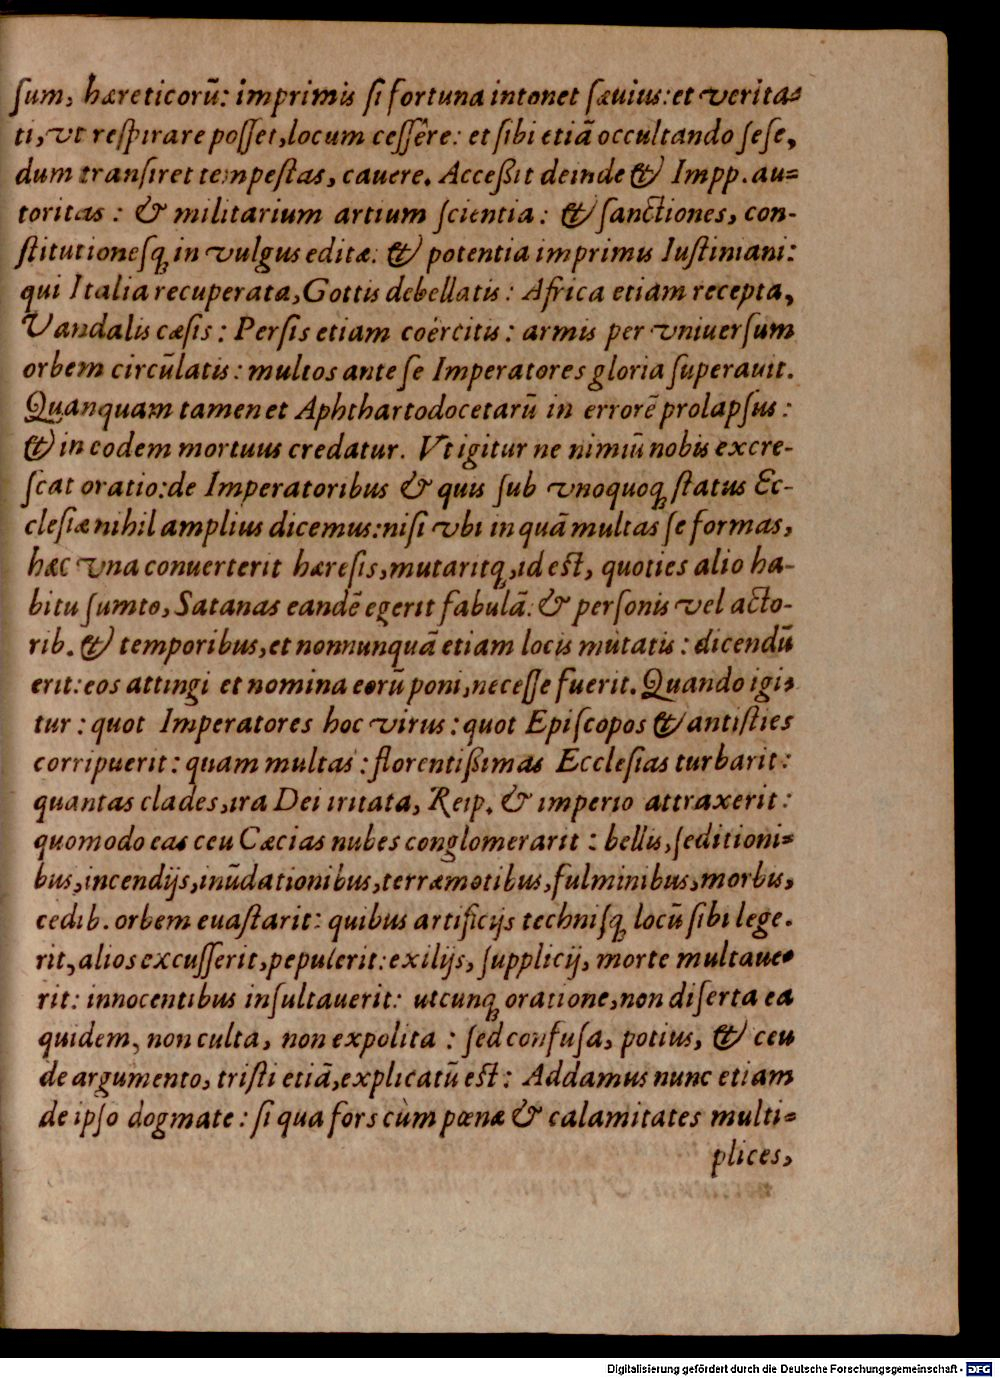 ſum, hæreticorū: imprimis ſi fortuna intonet ſæuius: et verita⸗
ti, vt reſpirare poſſet, locum ceſſêre: et ſibi etiā occultando ſeſe,
dum tranſiret tempeſtas, cauere. Acceßit deinde & Impp. au⸗
toritas: & militarium artium ſcientia: & ſanctiones, con-
ſtitutioneſq; in vulgus editæ: & potentia imprimis Iuſtiniani:
qui Italia recuperata, Gottis debellatis: Africa etiam recepta,
Vandalis cæſis: Perſis etiam coërcitis: armis per vniuerſum
orbem circūlatis: multos ante ſe Imperatores gloria ſuperauit.
Quanquam tamen et Aphthartodocetarū in errorē prolapſus:
& in eodem mortuus credatur. Vt igitur ne nimiū nobis excre-
ſcat oratio: de Imperatoribus & quis ſub vnoquoq; ſtatus Ec-
cleſiæ nihil amplius dicemus: niſi vbi in quā multas ſe formas,
hæc vna conuerterit hæreſis, mutaritq;, id eſt, quoties alio ha-
bitu ſumto, Satanas eandē egerit fabulā: & perſonis vel acto-
rib. & temporibus, et nonnunquā etiam locis mutatis: dicendū
erit: eos attingi et nomina eorū poni, neceſſe fuerit. Quando igi⸗
tur: quot Imperatores hoc virus: quot Epiſcopos & antiſties
corripuerit: quam multas: florentißimas Eccleſias turbarit:
quantas clades, ira Dei iritata, Reip. & imperio attraxerit:
quomodo eas ceu Cæcias nubes conglomerarit: bellis, ſeditioni⸗
bus, incendijs, inūdationibus, terræmotibus, fulminibus, morbis,
cedib. orbem euaſtarit: quibus artificijs techniſq; locū ſibi lege.
rit, alios excuſſerit, pepulerit: exilijs, ſupplicij, morte multaue⸗
rit: innocentibus inſultauerit: utcunq; oratione, non diſerta ea
quidem, non culta, non expolita: ſed confuſa, potius, & ceu
de argumento, triſti etiā, explicatū eſt: Addamus nunc etiam
de ipſo dogmate: ſi qua fors cùm pœnæ & calamitates multi⸗
plices,
Digitalisierung gefördert durch die Deutsche Forschungsgemeinschaft - DFG